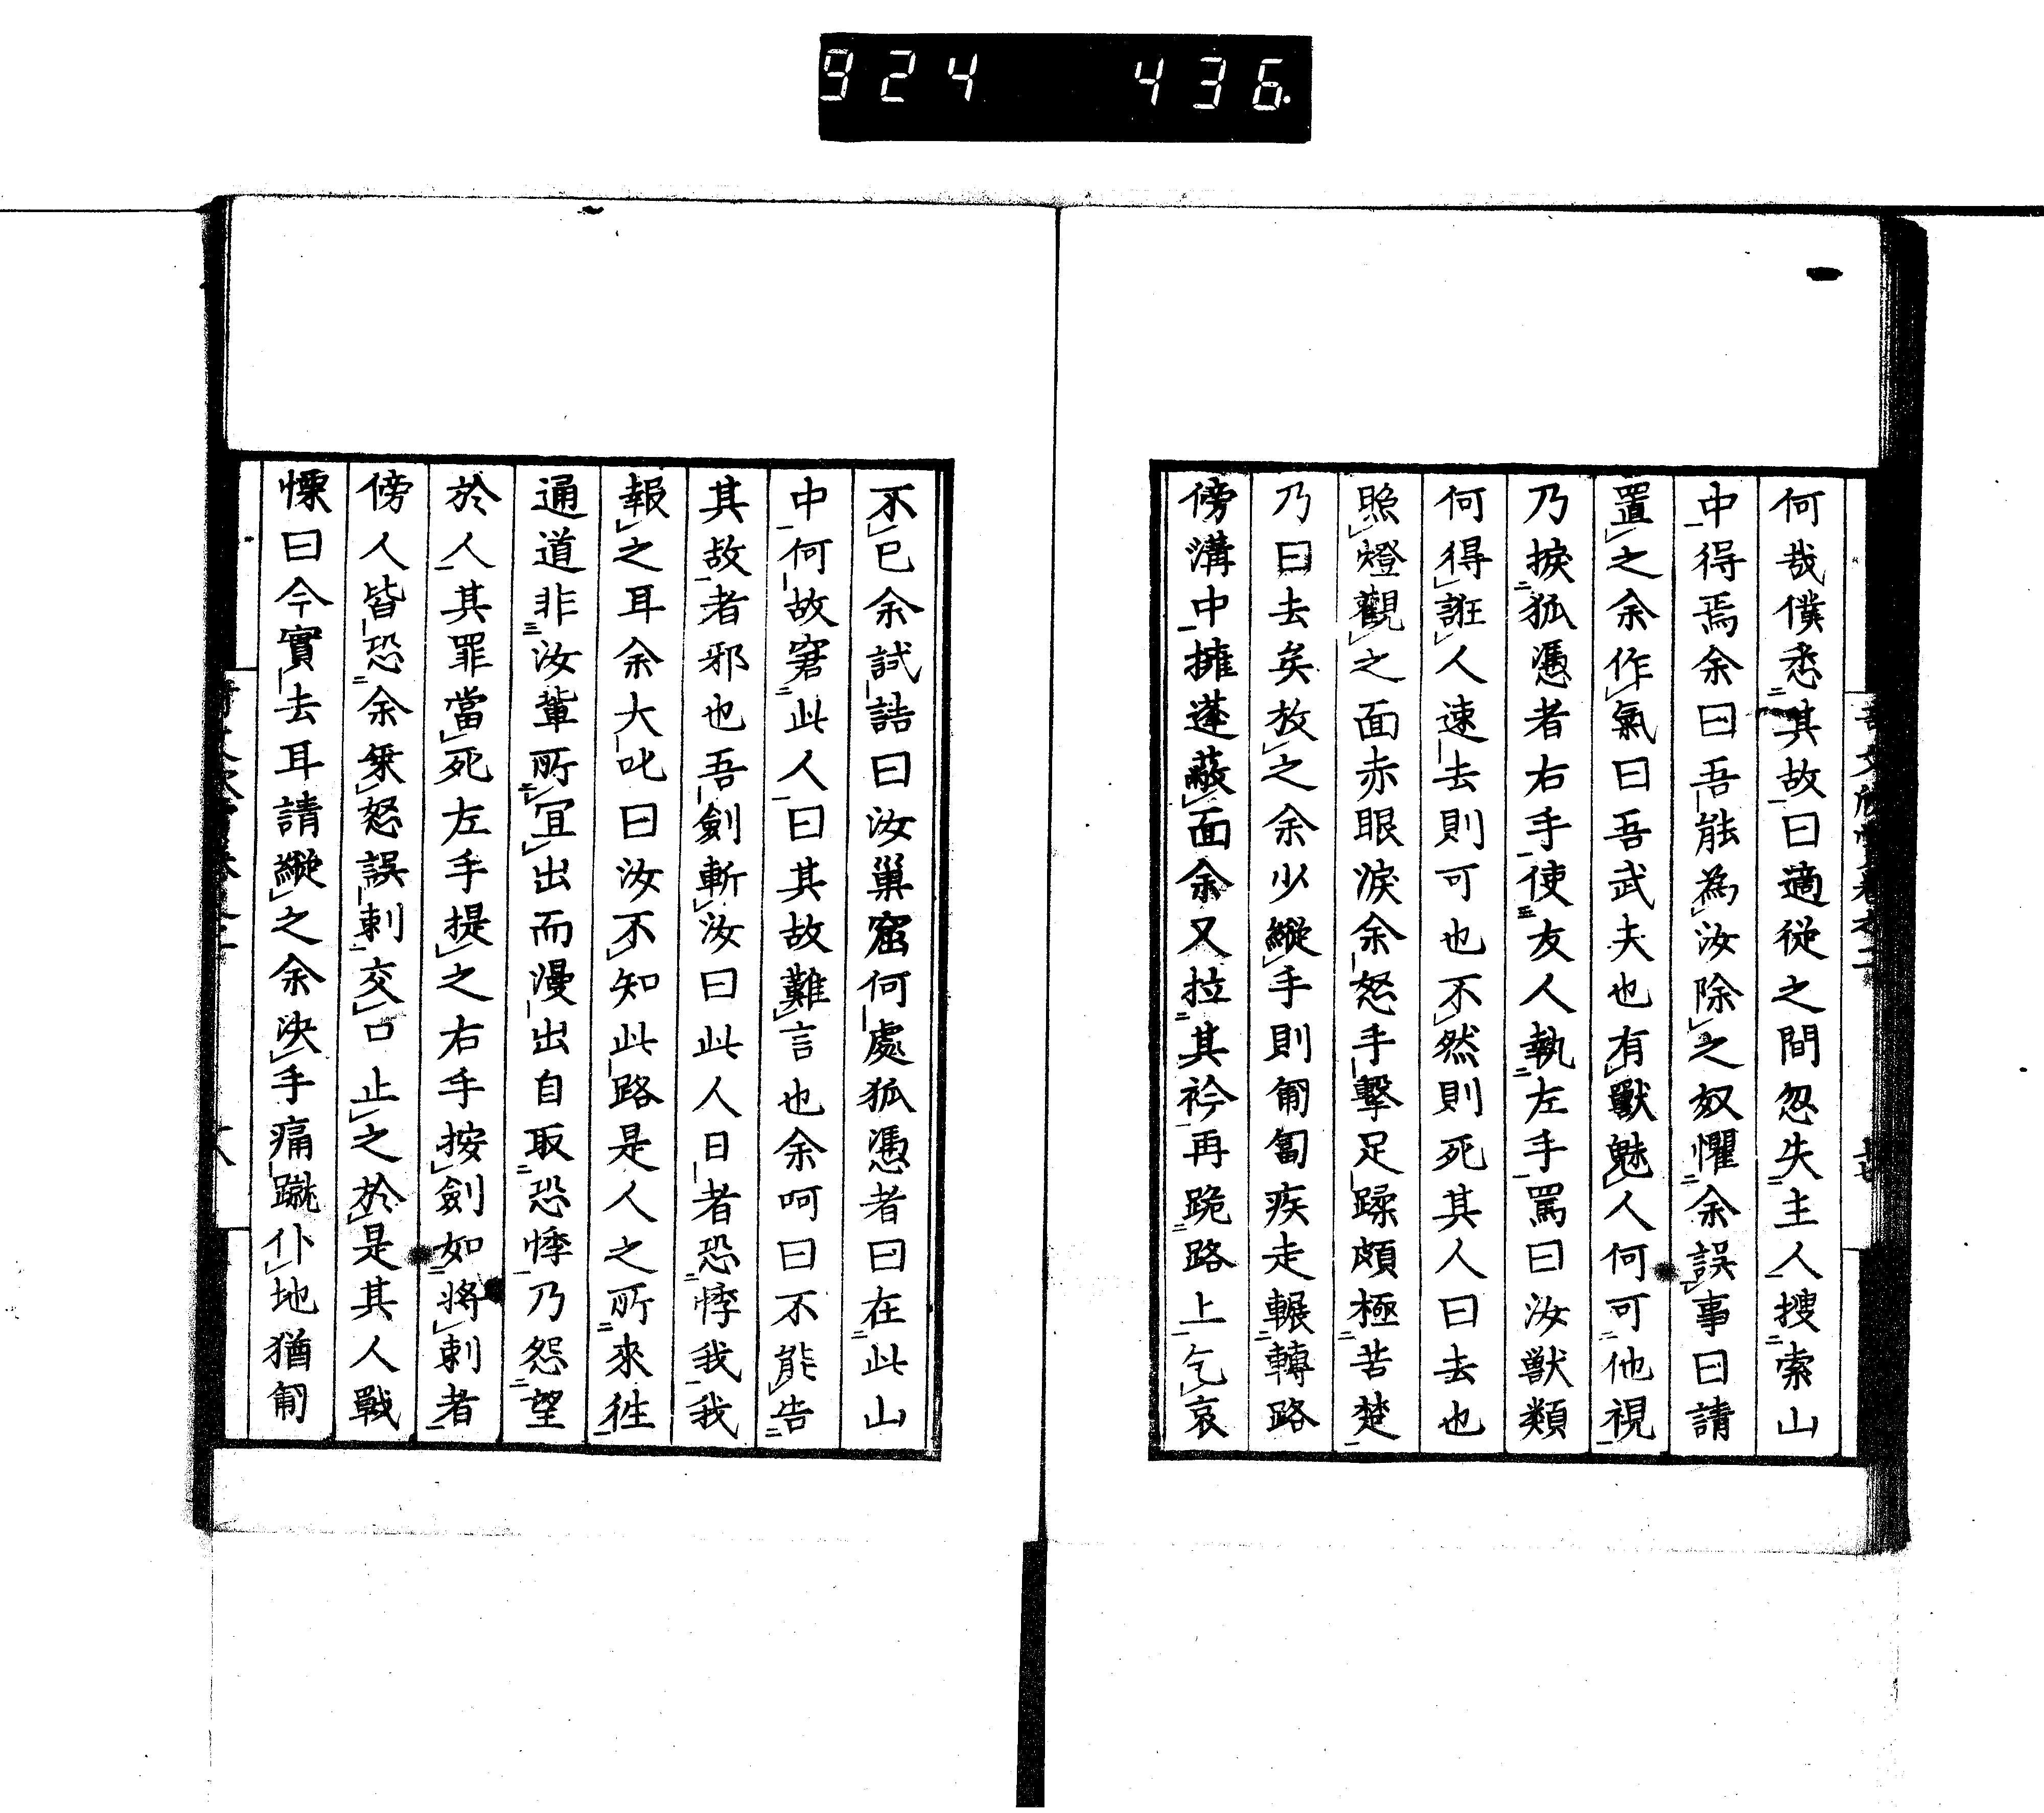 924 436
何哉僕悉其故曰適從之間忽失主人搜索山
中得焉余曰吾能為汝除之奴懼余誤事曰請
置之余作氣曰吾武夫也有獸魅人何可他視
乃捩狐憑者右手使友人執左手罵曰汝獣類
何得誑人速去則可也不然則死其人曰去也
照燈觀之面赤眼淚余怒手擊足蹂頗極苦楚
乃曰去矣放之余少縱手則匍匐疾走輾轉路
傍溝中擁蓬蔽面余又拉其衿再跪路上乞哀
不已余試詰曰汝巢窟何處狐憑者曰在此山
中何故窘此人曰其故難言也余呵曰不能告
其故者邪也吾劍斬汝曰此人日者恐悸我我
報之耳余大叱曰汝不知此路是人之所來往
通道非汝輩所宜出而漫出自取恐悸乃怨望
於人其罪當死左手提之右手按劍如將刺者
傍人皆恐余乗怒誤刺交口止之於是其人戰
慄曰今實去耳請縱之余決手痛蹴仆地猶匍